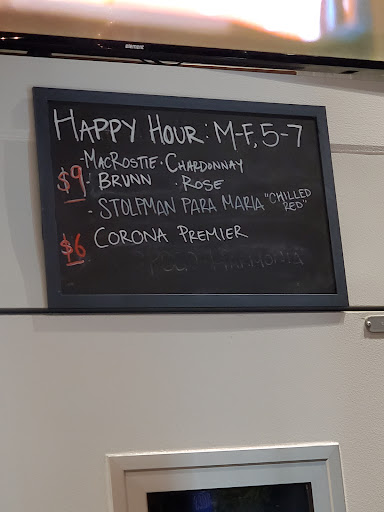 element
HAPPY HOUR: M-F, 5-7
- MACROSTIE · CHARDONNAY
$9 BRUNN · ROSE
- STOLPMAN PARA MARIA "CHILLED RED"
$6 CORONA PREMIER